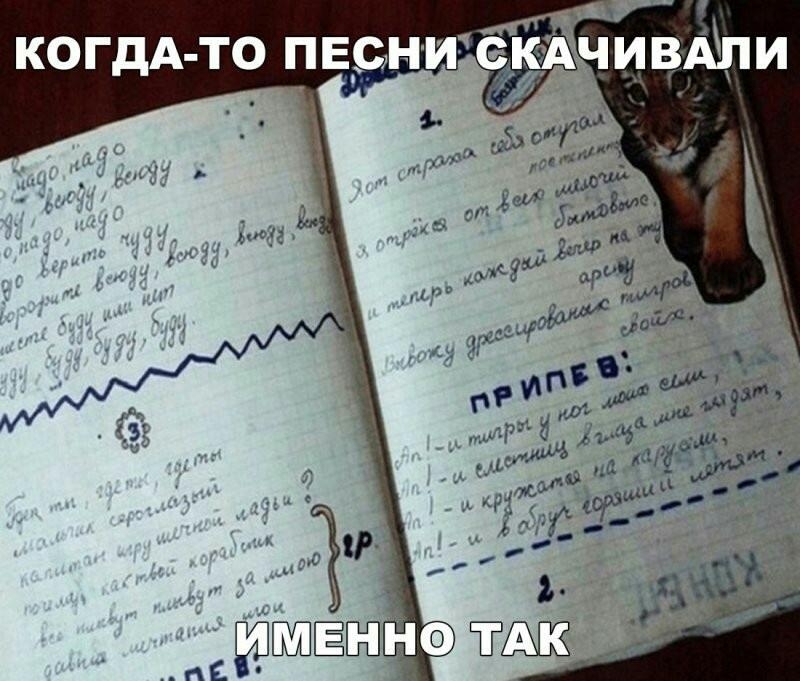 КОГДА-ТО ПЕСНИ СКАЧИВАЛИ
надо, надо
всюду, всюду
надо, надо
верить чуду
всюду, всюду, всюду, всюду
вместе буду или нет
буду, буду, буду, буду.
3
Где ты, где ты, где ты
мальчик сероглазый
капитан игрушечной ладьи?
почему, как твой кораблик
все плывут плывут за мною
давние мечтания мои
2р.
Дрессировщик.
1.
Я от страха себя отучал
постепенно,
Я отрёкся от всех мелочей
бытовых,
и теперь каждый вечер на эту
арену
Вывожу дрессированых тигров
своих.
ПРИПЕВ:
Ап!-и тигры у ног моих сели,
Ап!-и с лестниц в глаза мне глядят,
Ап!-и кружатся на карусели,
Ап!-и в обруч горящий летят.
2.
КОНЕЦ
ИМЕННО ТАК